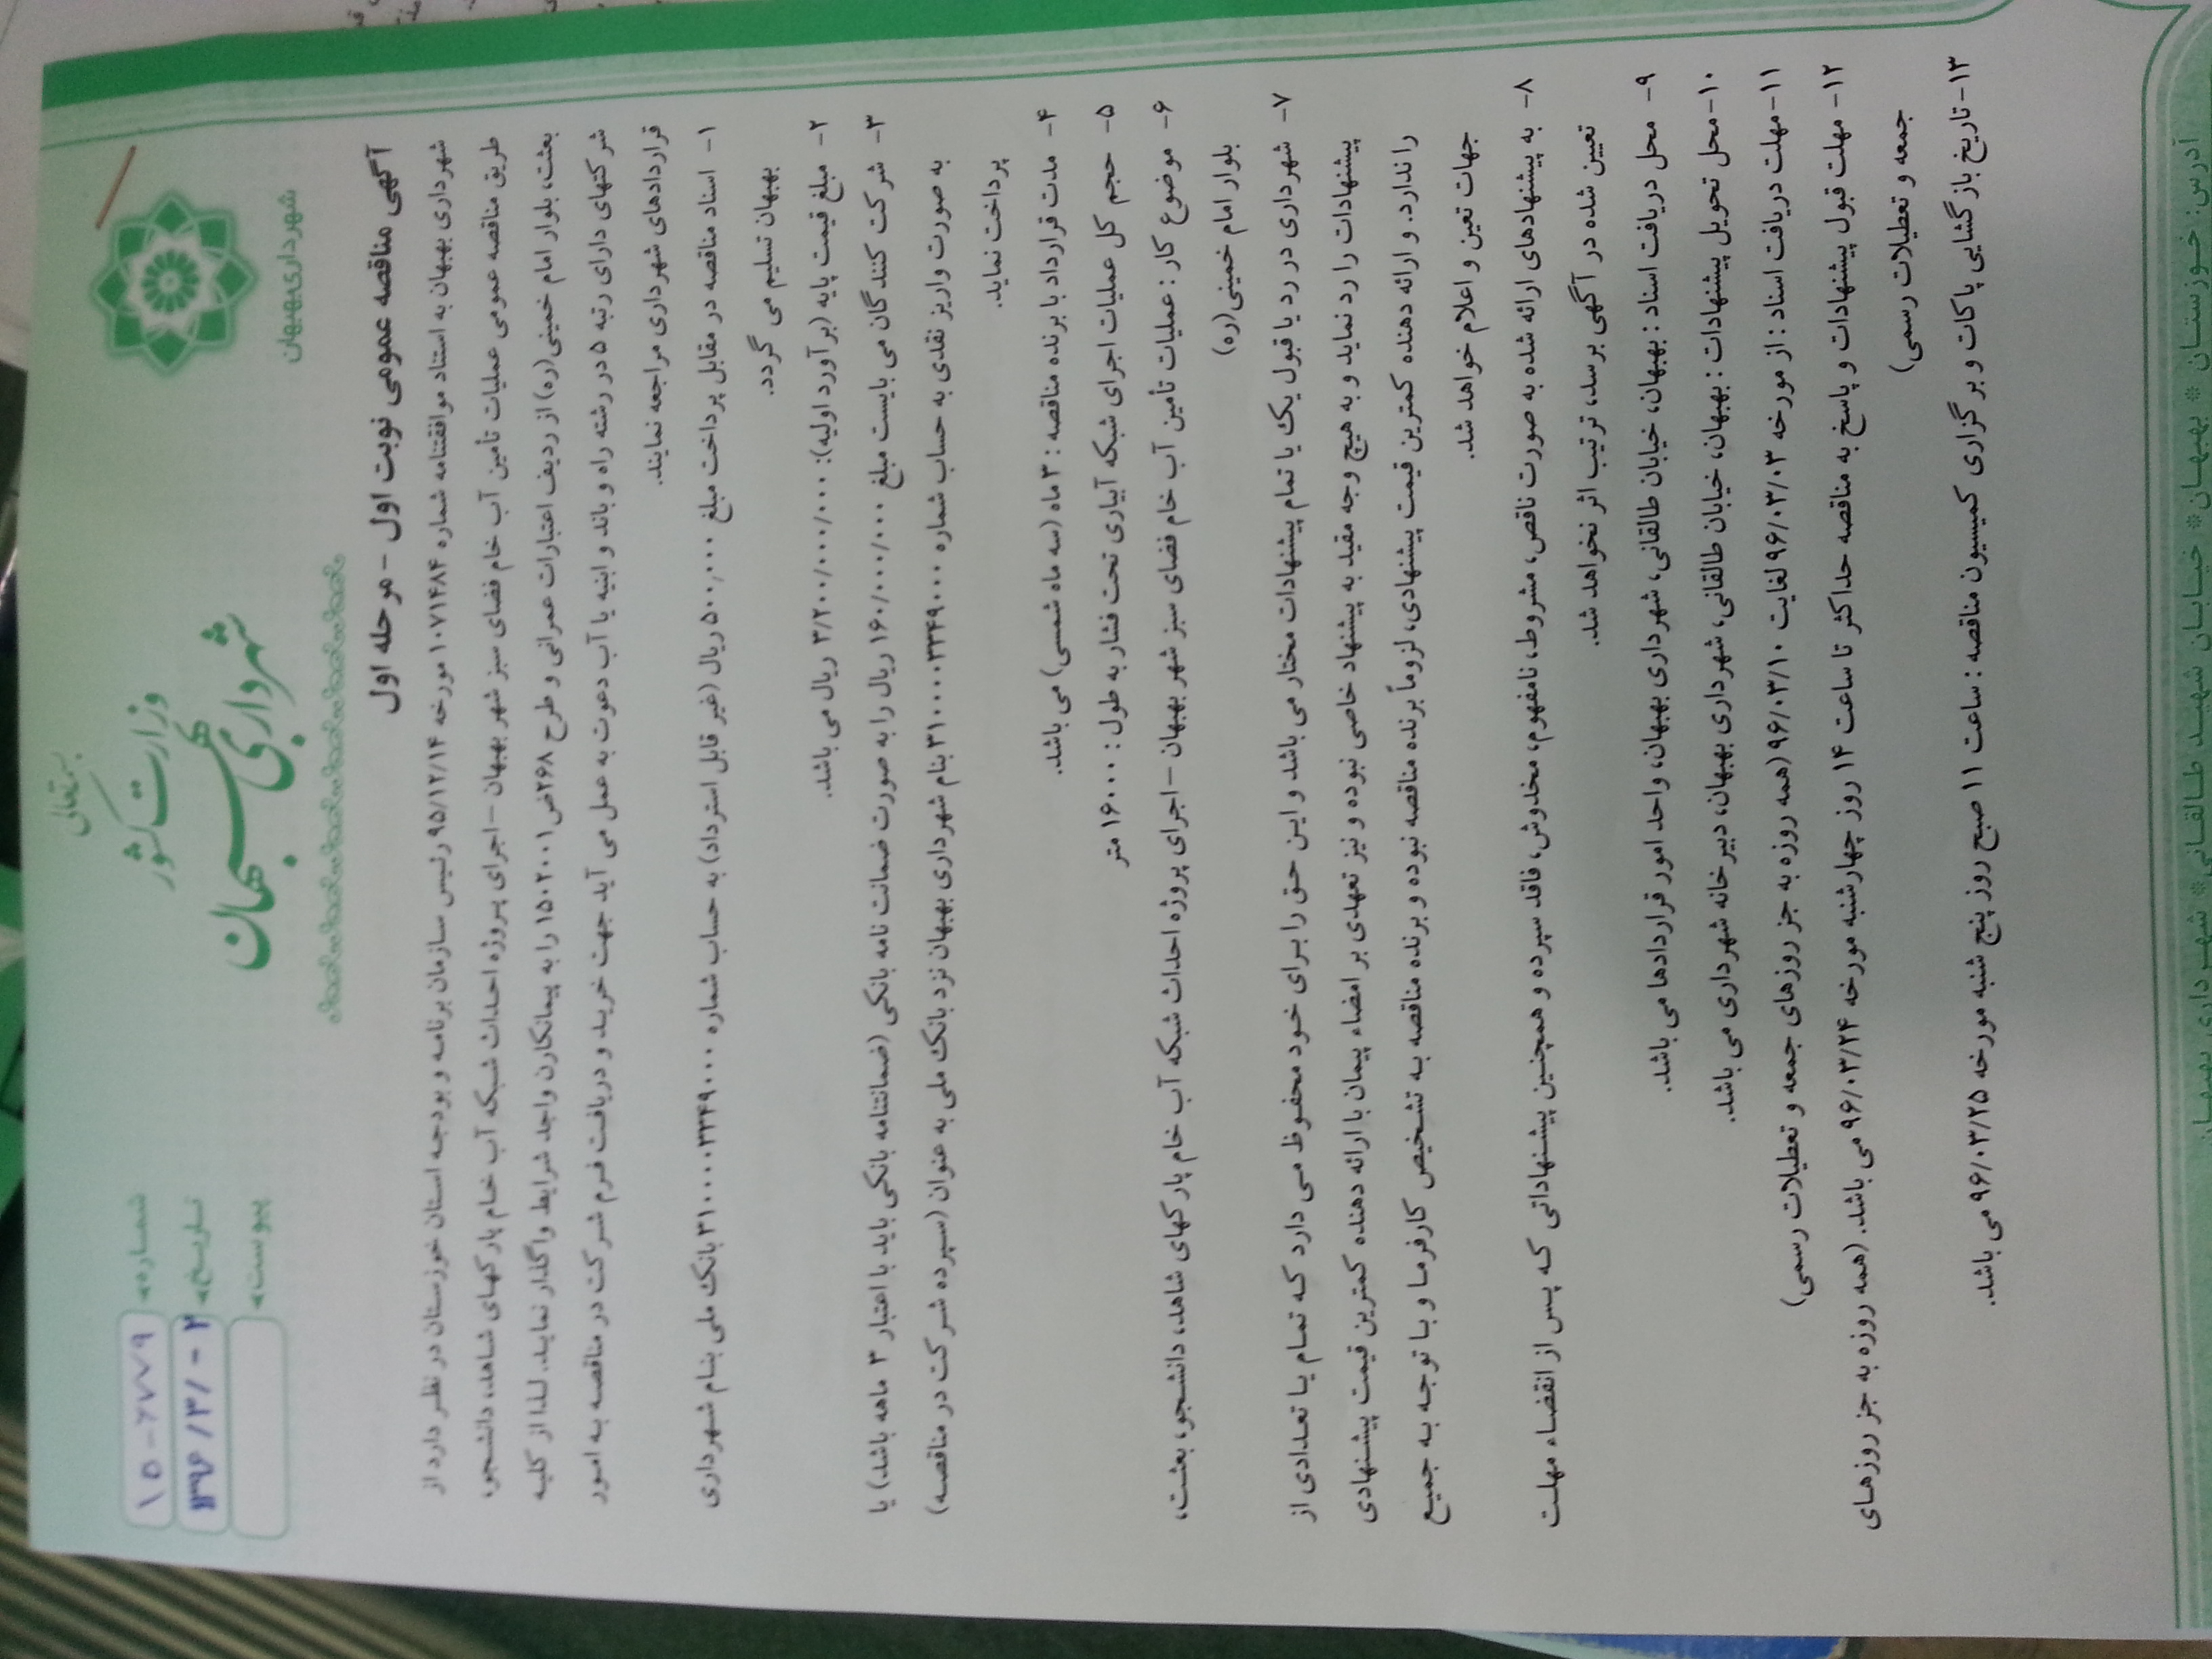 بسمه تعالی
وزارت کشور
شهرداری بهبهان
شهرداری بهبهان
شماره
۱۵-۶۷۷۹
تاریخ
پیوست
آگهی مناقصه عمومی نوبت اول – مرحله اول
شهرداری بهبهان به استناد موافقتنامه شماره ۱۰۷۱۴۸۴ مورخه ۹۵/۱۲/۱۴ رئیس سازمان برنامه و بودجه استان خوزستان در نظر دارد از
طریق مناقصه عمومی عملیات تأمین آب خام فضای سبز شهر بهبهان –اجرای پروژه احداث شبکه آب خام پارکهای شاهد، دانشجو،
بعثت، بلوار امام خمینی(ره) از ردیف اعتبارات عمرانی و طرح ۱۵۰۲۰۰۱ض۲۶۸ را به پیمانکارن واجد شرایط واگذار نماید. لذا از کلیه
شرکتهای دارای رتبه ۵ در رشته راه و باند و ابنیه یا آب دعوت به عمل می آید جهت خرید و دریافت فرم شرکت در مناقصه به امور
قراردادهای شهرداری مراجعه نمایند.
۱- اسناد مناقصه در مقابل پرداخت مبلغ ۵۰۰,۰۰۰ ریال (غیر قابل استرداد) به حساب شماره ۳۱۰۰۰۰۳۳۴۹۰۰۰ بانک ملی بنام شهرداری
بهبهان تسلیم می گردد.
۲- مبلغ قیمت پایه (برآورد اولیه): ۳/۲۰۰/۰۰۰/۰۰۰ ریال می باشد.
۳- شرکت کنندگان می بایست مبلغ ۱۶۰/۰۰۰/۰۰۰ ریال را به صورت ضمانت نامه بانکی (ضمانتنامه بانکی باید با اعتبار ۳ ماهه باشد) یا
به صورت واریز نقدی به حساب شماره ۳۱۰۰۰۰۳۳۴۹۰۰۰ بنام شهرداری بهبهان نزد بانک ملی به عنوان (سپرده شرکت در مناقصه)
پرداخت نماید.
۴- مدت قرارداد با برنده مناقصه : ۳ ماه (سه ماه شمسی) می باشد.
۵- حجم کل عملیات اجرای شبکه آبیاری تحت فشار به طول : ۱۶۰۰۰ متر
۶- موضوع کار : عملیات تأمین آب خام فضای سبز شهر بهبهان –اجرای پروژه احداث شبکه آب خام پارکهای شاهد، دانشجو، بعثت،
بلوار امام خمینی(ره)
۷- شهرداری در رد یا قبول یک یا تمام پیشنهادات مختار می باشد و این حق را برای خود محفوظ می دارد که تمام یا تعدادی از
پیشنهادات را رد نماید و به هیچ وجه مقید به پیشنهاد خاصی نبوده و نیز تعهدی بر امضاء پیمان با ارائه دهنده کمترین قیمت پیشنهادی
را ندارد. و ارائه دهنده کمترین قیمت پیشنهادی، لزوماً برنده مناقصه نبوده و برنده مناقصه به تشخیص کارفرما و با توجه به جمیع
جهات تعین و اعلام خواهد شد.
۸- به پیشنهادهای ارائه شده به صورت ناقص، مشروط، نامفهوم، مخدوش، فاقد سپرده و همچنین پیشنهاداتی که پس از انقضاء مهلت
تعیین شده در آگهی برسد، ترتیب اثر نخواهد شد.
۹- محل دریافت اسناد : بهبهان، خیابان طالقانی، شهرداری بهبهان، واحد امور قراردادها می باشد.
۱۰-محل تحویل پیشنهادات : بهبهان، خیابان طالقانی، شهرداری بهبهان، دبیرخانه شهرداری می باشد.
۱۱-مهلت دریافت اسناد : از مورخه ۹۶/۰۳/۰۳ لغایت ۹۶/۰۳/۱۰ (همه روزه به جز روزهای جمعه و تعطیلات رسمی)
۱۲- مهلت قبول پیشنهادات و پاسخ به مناقصه حداکثر تا ساعت ۱۴ روز چهارشنبه مورخه ۹۶/۰۳/۲۴ می باشد. (همه روزه به جز روزهای
جمعه و تعطیلات رسمی)
۱۳-تاریخ بازگشایی پاکات و برگزاری کمیسیون مناقصه : ساعت ۱۱ صبح روز پنج شنبه مورخه ۹۶/۰۳/۲۵ می باشد.
آدرس: خوزستان * بهبهان* خیابان شهید طالقانی* شهرداری بهبهان